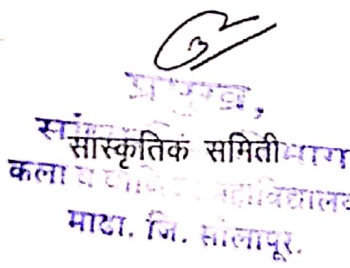 प्रमुख,
सांस्कृतिक समिती विभाग
कला व वाणिज्य महाविद्यालय
माढा. जि. सोलापूर.